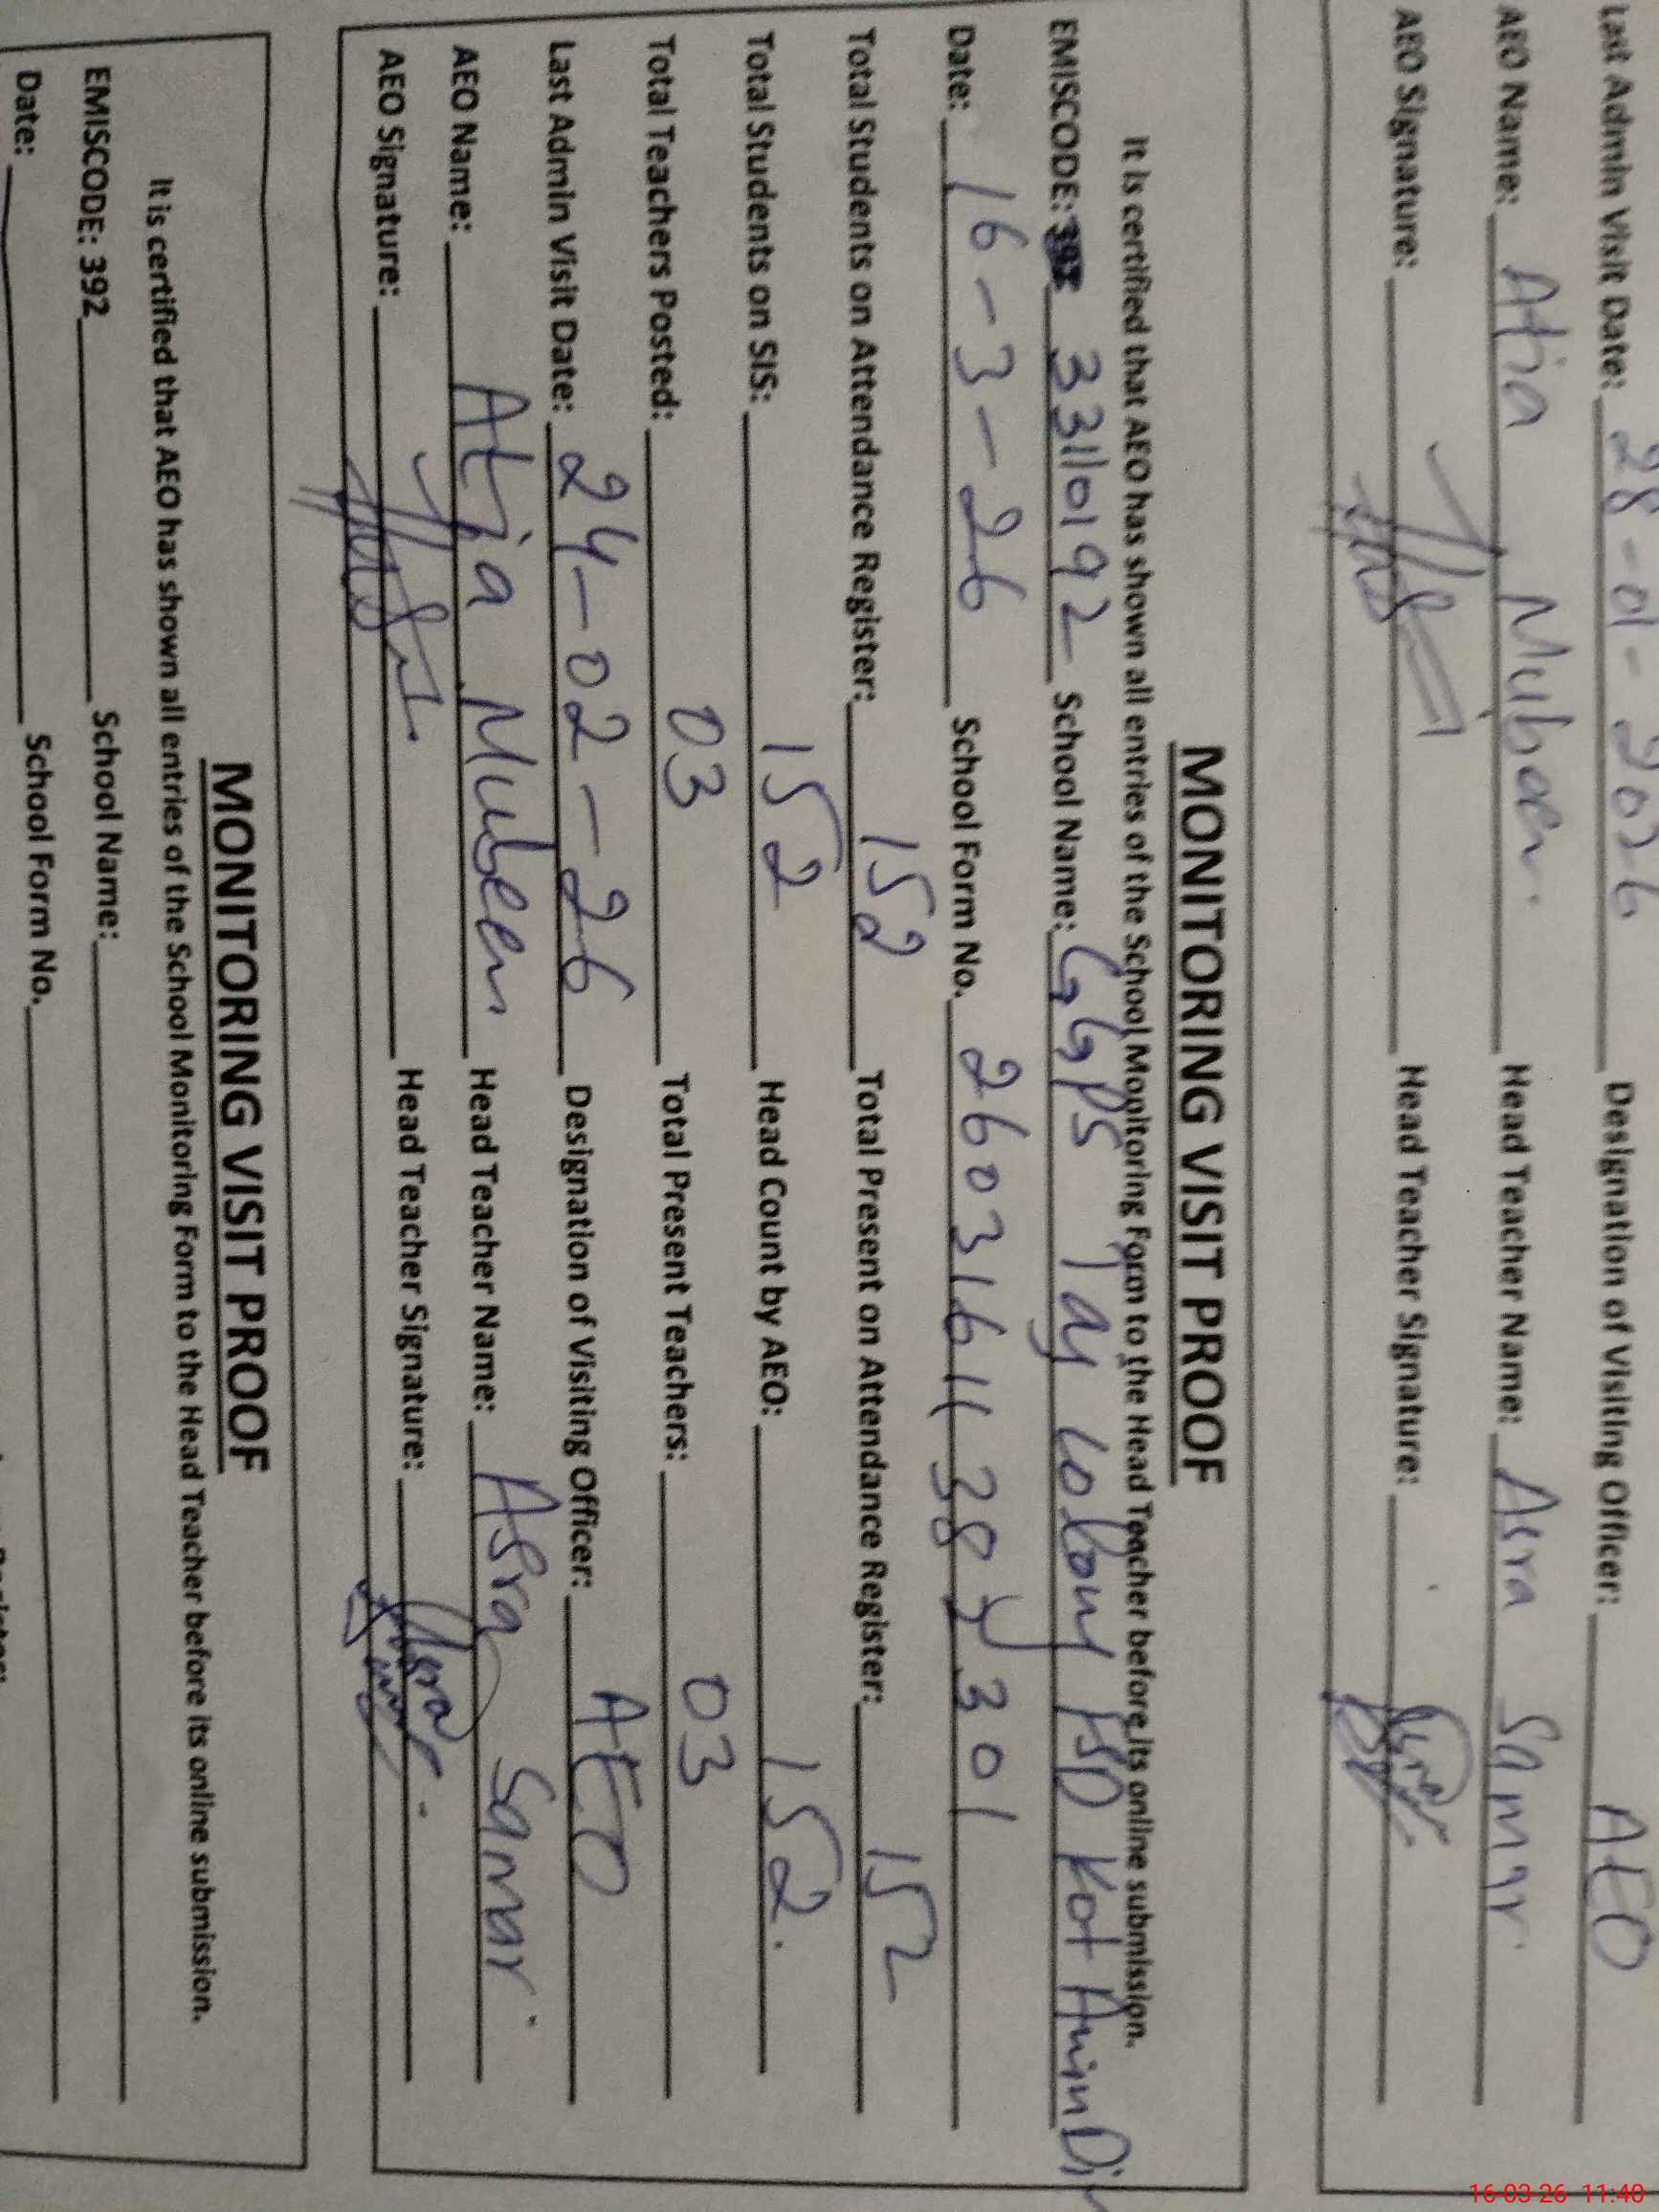 Last Admin Visit Date: 28-01-2026 Designation of Visiting Officer: AEO
AEO Name: Atia Mubeen. Head Teacher Name: Asra Samar.
AEO Signature: Head Teacher Signature:
MONITORING VISIT PROOF
It is certified that AEO has shown all entries of the School Monitoring Form to the Head Teacher before its online submission.
EMISCODE: 33110192 School Name: GGPS Taj Colony FSD Kot Amin Di
Date: 16-3-26 School Form No.
Total Students on Attendance Register: 152 Total Present on Attendance Register: 152
Total Students on SIS: 152 Head Count by AEO: 152.
Total Teachers Posted: 03 Total Present Teachers: 03
Last Admin Visit Date: 24-02-26 Designation of Visiting Officer: AEO
AEO Name: Atia Mubeen Head Teacher Name: Asra Samar.
AEO Signature: Head Teacher Signature:
MONITORING VISIT PROOF
It is certified that AEO has shown all entries of the School Monitoring Form to the Head Teacher before its online submission.
EMISCODE: 392 School Name:
Date: School Form No.
16-03-26 11:40